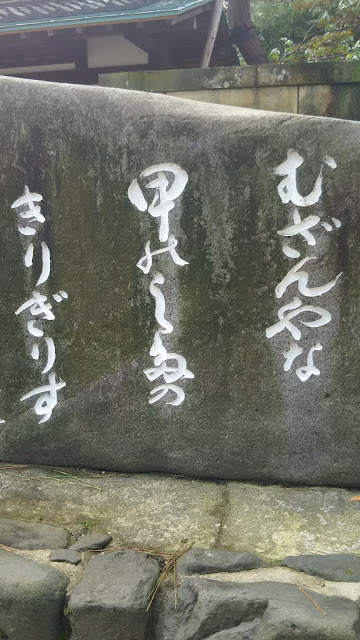 むざんやな
甲のし多の
きりぎりす